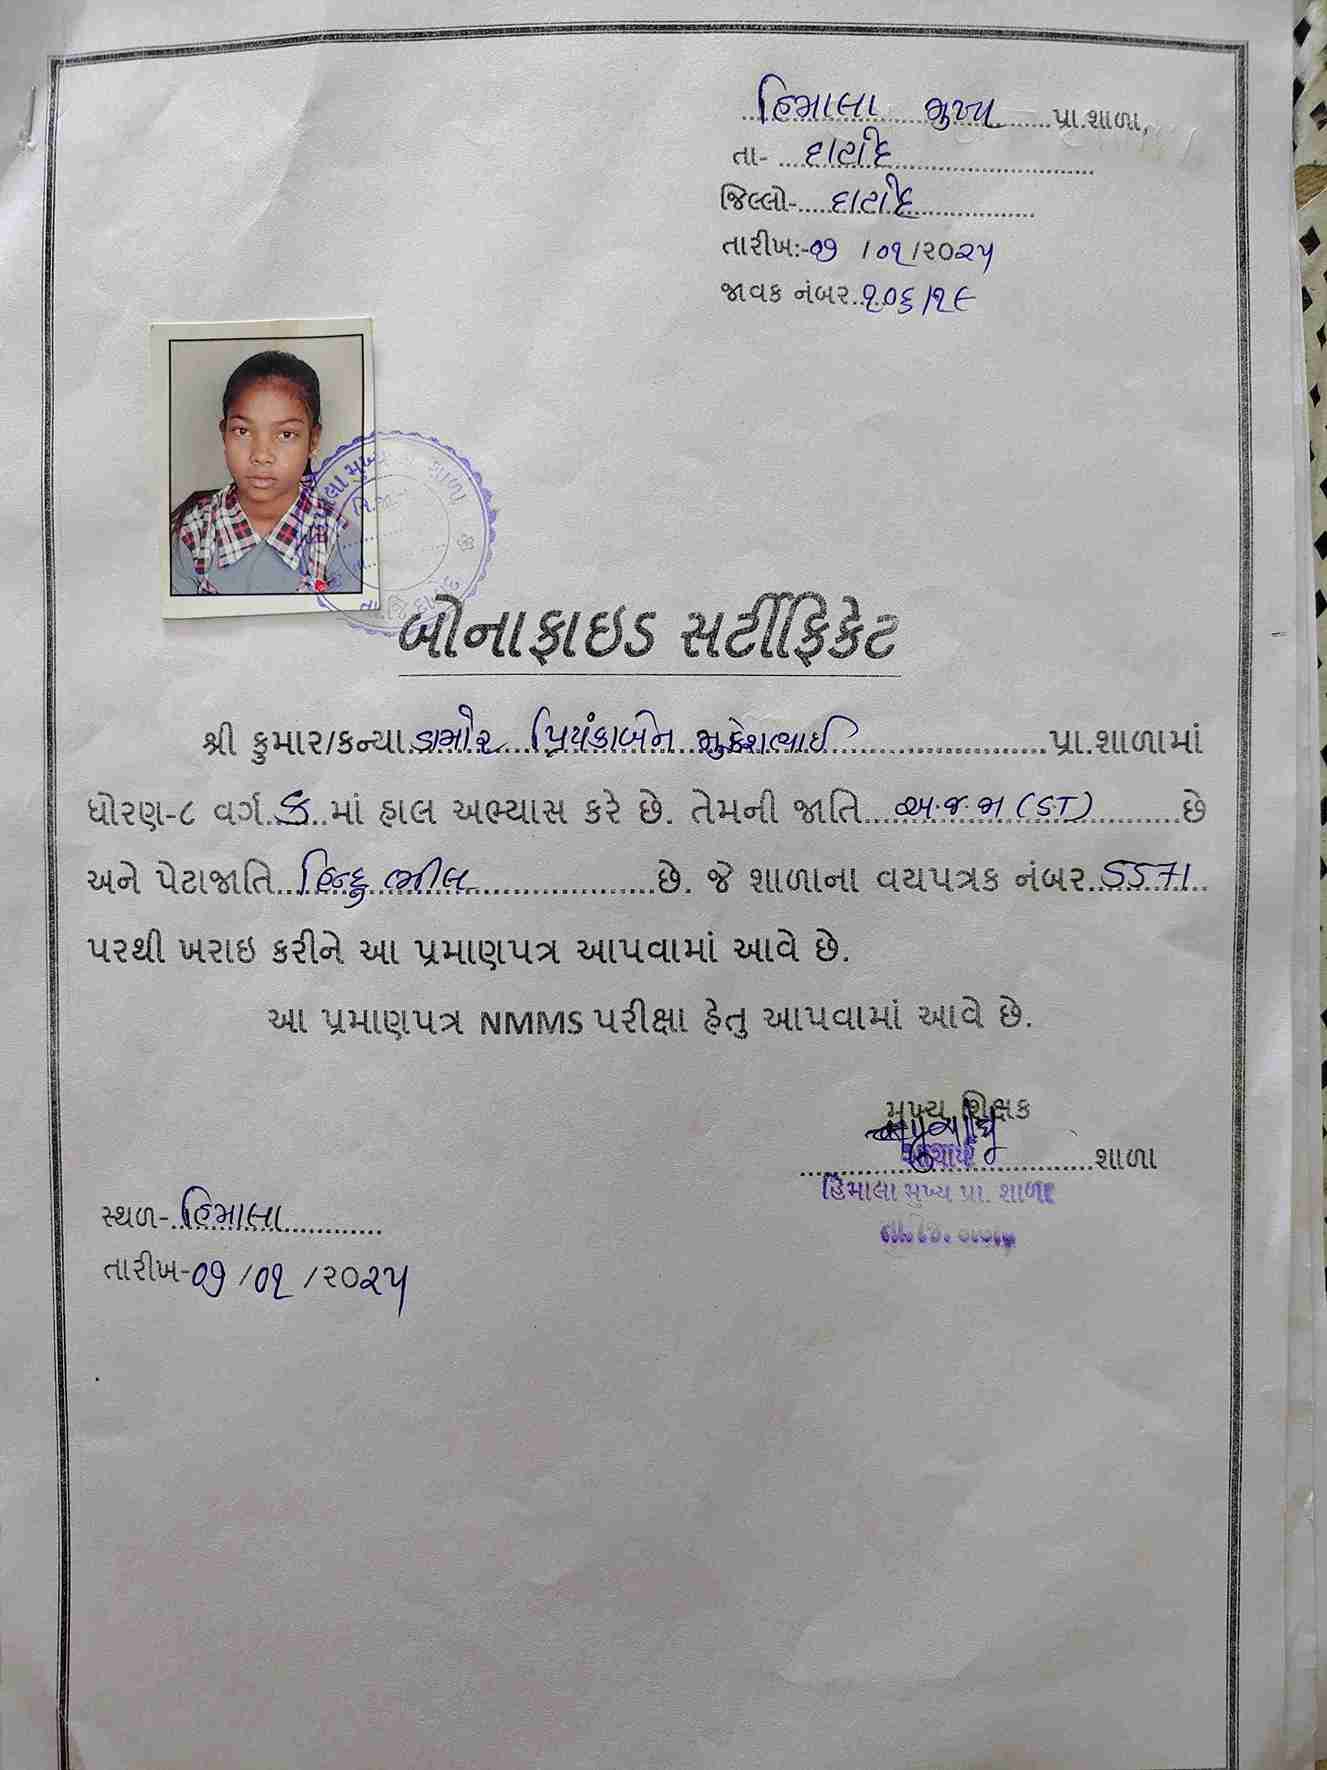 હિમાલા મુખ્ય પ્રા.શાળા,
તા- દાહોદ
જિલ્લો- દાહોદ
તારીખ:-૦૭ /૦૧/૨૦૨૫
જાવક નંબર..૧૦૬/૧૯
બોનાફાઇડ સર્ટીફિકેટ
શ્રી કુમાર/કન્યા.ડામોર પ્રિયંકાબેન મુકેશભાઈ પ્રા.શાળામાં
ધોરણ-૮ વર્ગ.ક.માં હાલ અભ્યાસ કરે છે. તેમની જાતિ અ.જ.જા (ST) છે
અને પેટાજાતિ હિન્દુ ભીલ છે. જે શાળાના વયપત્રક નંબર 5571
પરથી ખરાઇ કરીને આ પ્રમાણપત્ર આપવામાં આવે છે.
આ પ્રમાણપત્ર NMMS પરીક્ષા હેતુ આપવામાં આવે છે.
મુખ્ય શિક્ષક
આચાર્ય શાળા
હિમાલા મુખ્ય પ્રા. શાળા
સ્થળ- હિમાલા
તારીખ-૦૭ /૦૧ /૨૦૨૫